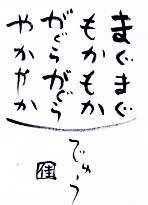 まぐまぐ
もかもか
がぐらがぐら
やかやか
でゅう